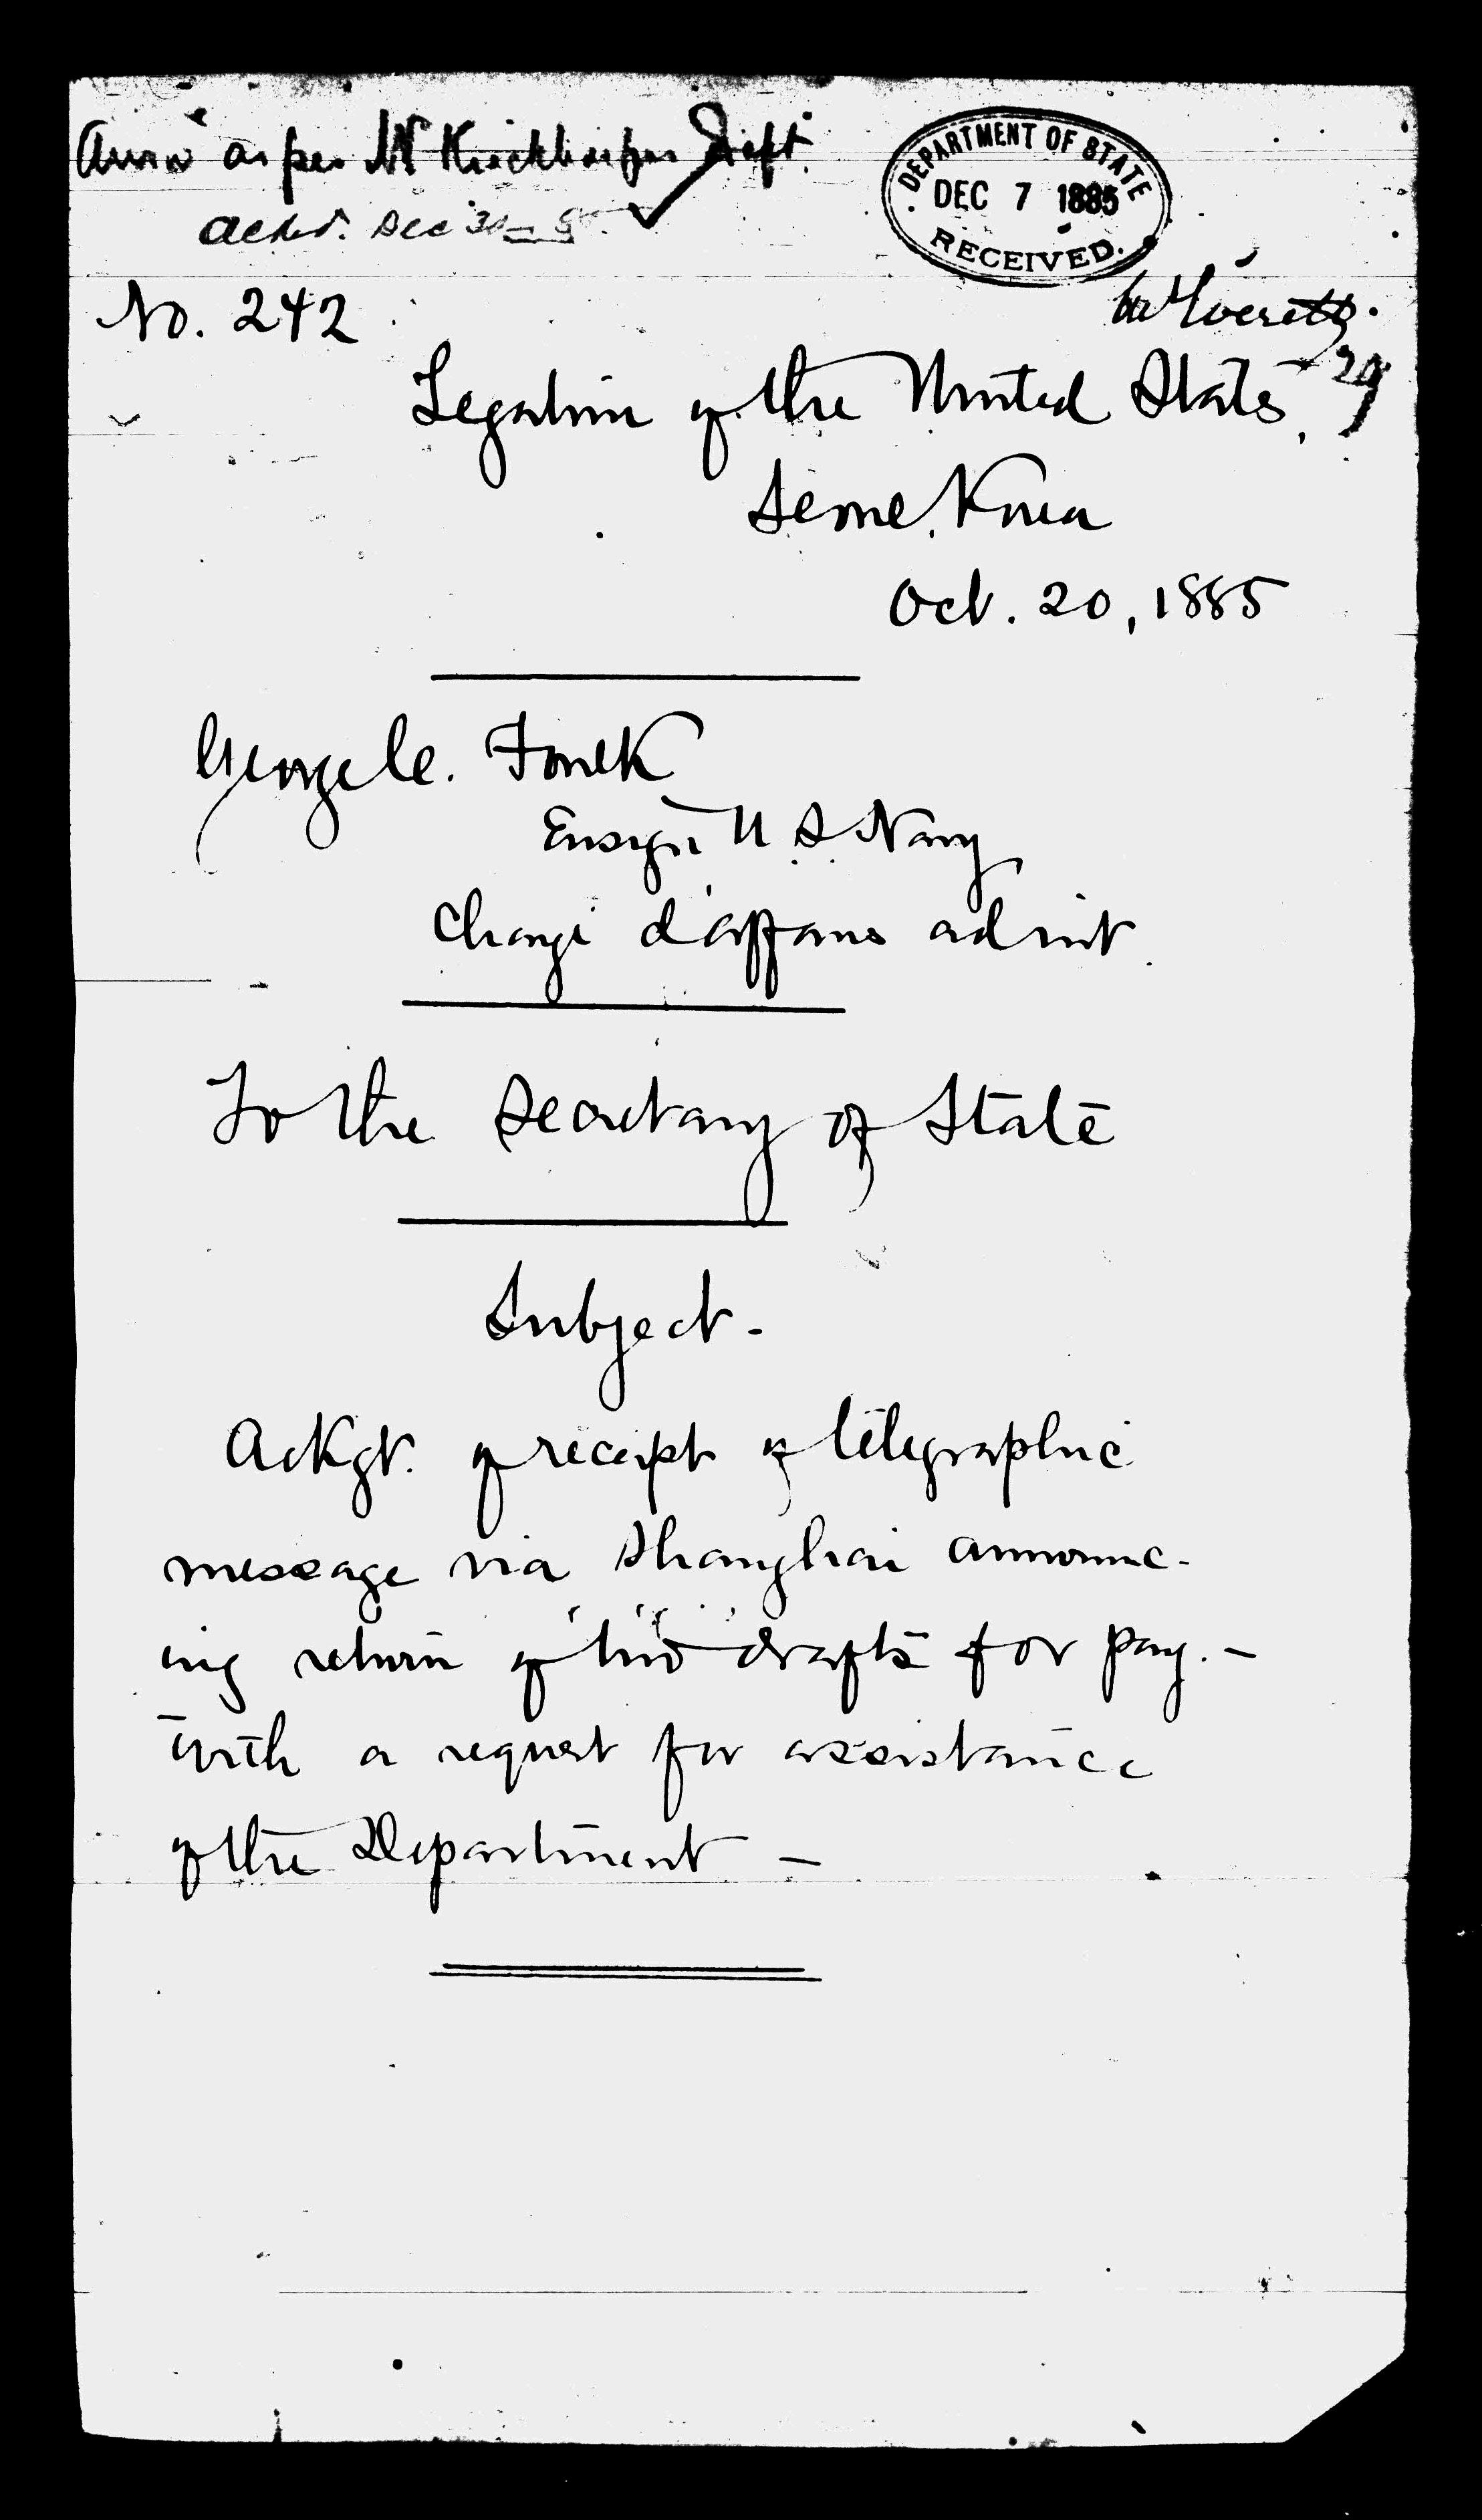 as per Mr
DEPARTMENT OF STATE
DEC 7 1885
RECEIVED.
Dec 30
No. 242
Legation of the United States,
Seoul, Korea
Oct. 20, 1885
George C. Foulk
Ensign U S Navy
Chargé d'affaires ad int.
To the Secretary of State
Subject-
Ackgt. of receipt of telegraphic
message via Shanghai announc-
ing return of his drafts for pay.-
with a request for assistance
of the Department -